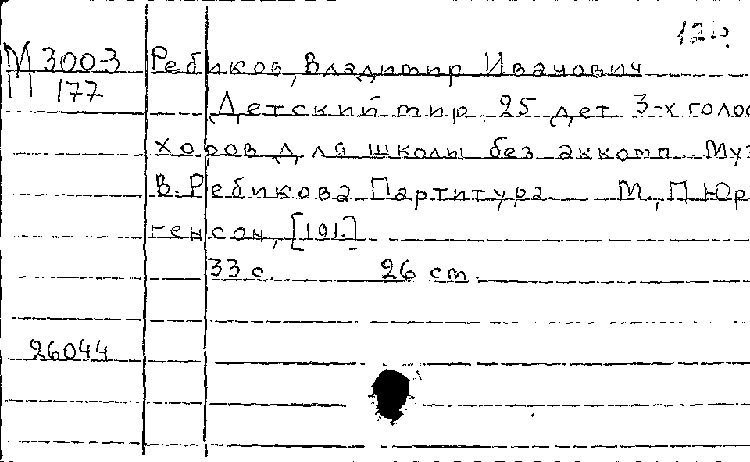 М 300-3
П 177
Ребиков, Владимир Иванович
Детский мир 25 дет 3-х голос
хоров для школы без акком Муз
В. Ребикова Партитура М., П Юр
генсон, [191.]
33 с. 26 см.
26044